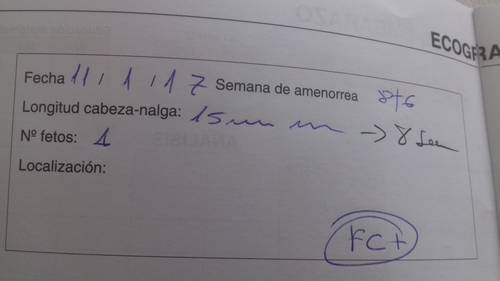 ECOGRA
Fecha 11 / 1 / 17 Semana de amenorrea 8+6
Longitud cabeza-nalga: 15 mm → 8 Sem
Nº fetos: 1
Localización:
FC+